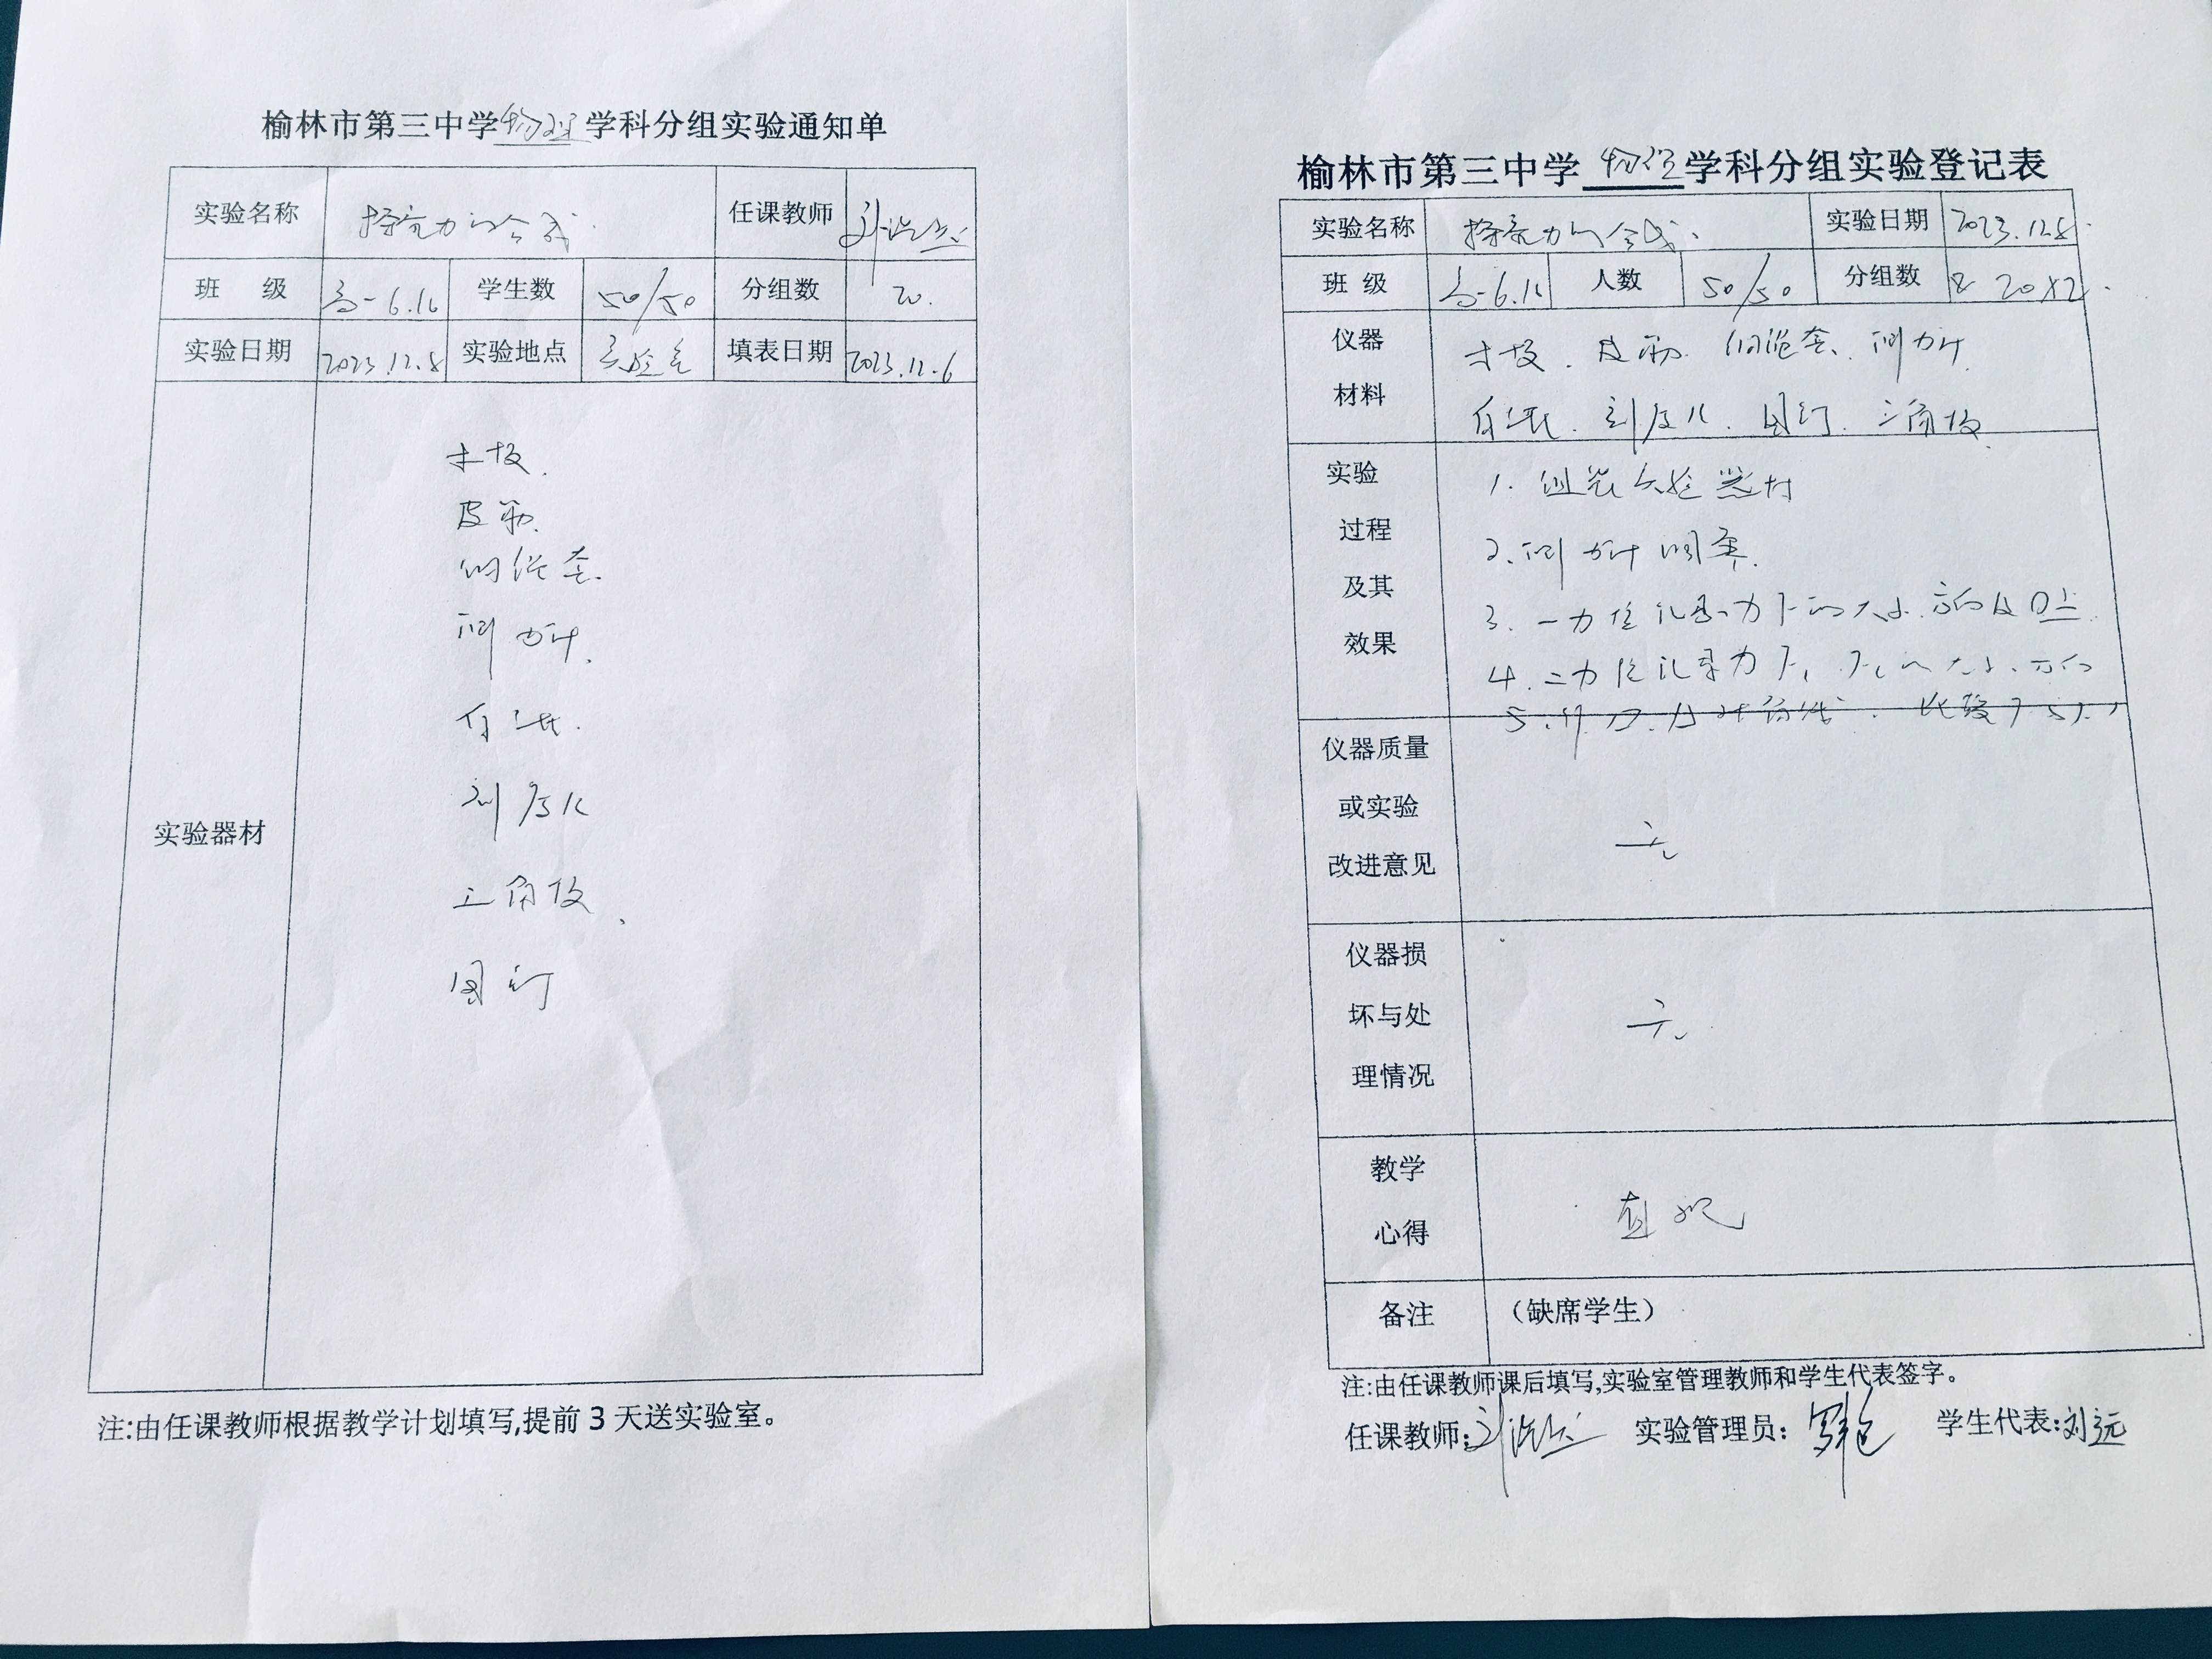 榆林市第三中学物理学科分组实验通知单
实验名称 探究力的合成. 任课教师
班 级 高一6.16 学生数 50/50 分组数 20.
实验日期 2023.12.8 实验地点 实验室 填表日期 2023.12.6
实验器材
木板.
皮筋.
细绳套.
测力计.
白纸.
刻度尺
三角板.
图钉
注:由任课教师根据教学计划填写,提前 3 天送实验室。
榆林市第三中学 物理 学科分组实验登记表
实验名称 探究力的合成. 实验日期 2023.12.8.
班 级 高一6.16 人数 50/50 分组数 20×2.
仪器 木板. 皮筋. 细绳套. 测力计.
材料 白纸. 刻度尺. 图钉. 三角板.
实验 1. 组装实验器材
过程 2. 测力计调零.
及其 3. 一力作记录力F的大小.方向及O点.
效果 4. 二力作记录力F1 F2的大小.方向
5.
仪器质量
或实验 无
改进意见
仪器损
坏与处 无
理情况
教学 直观
心得
备注 （缺席学生）
注:由任课教师课后填写,实验室管理教师和学生代表签字。
任课教师: 实验管理员: 学生代表:刘远